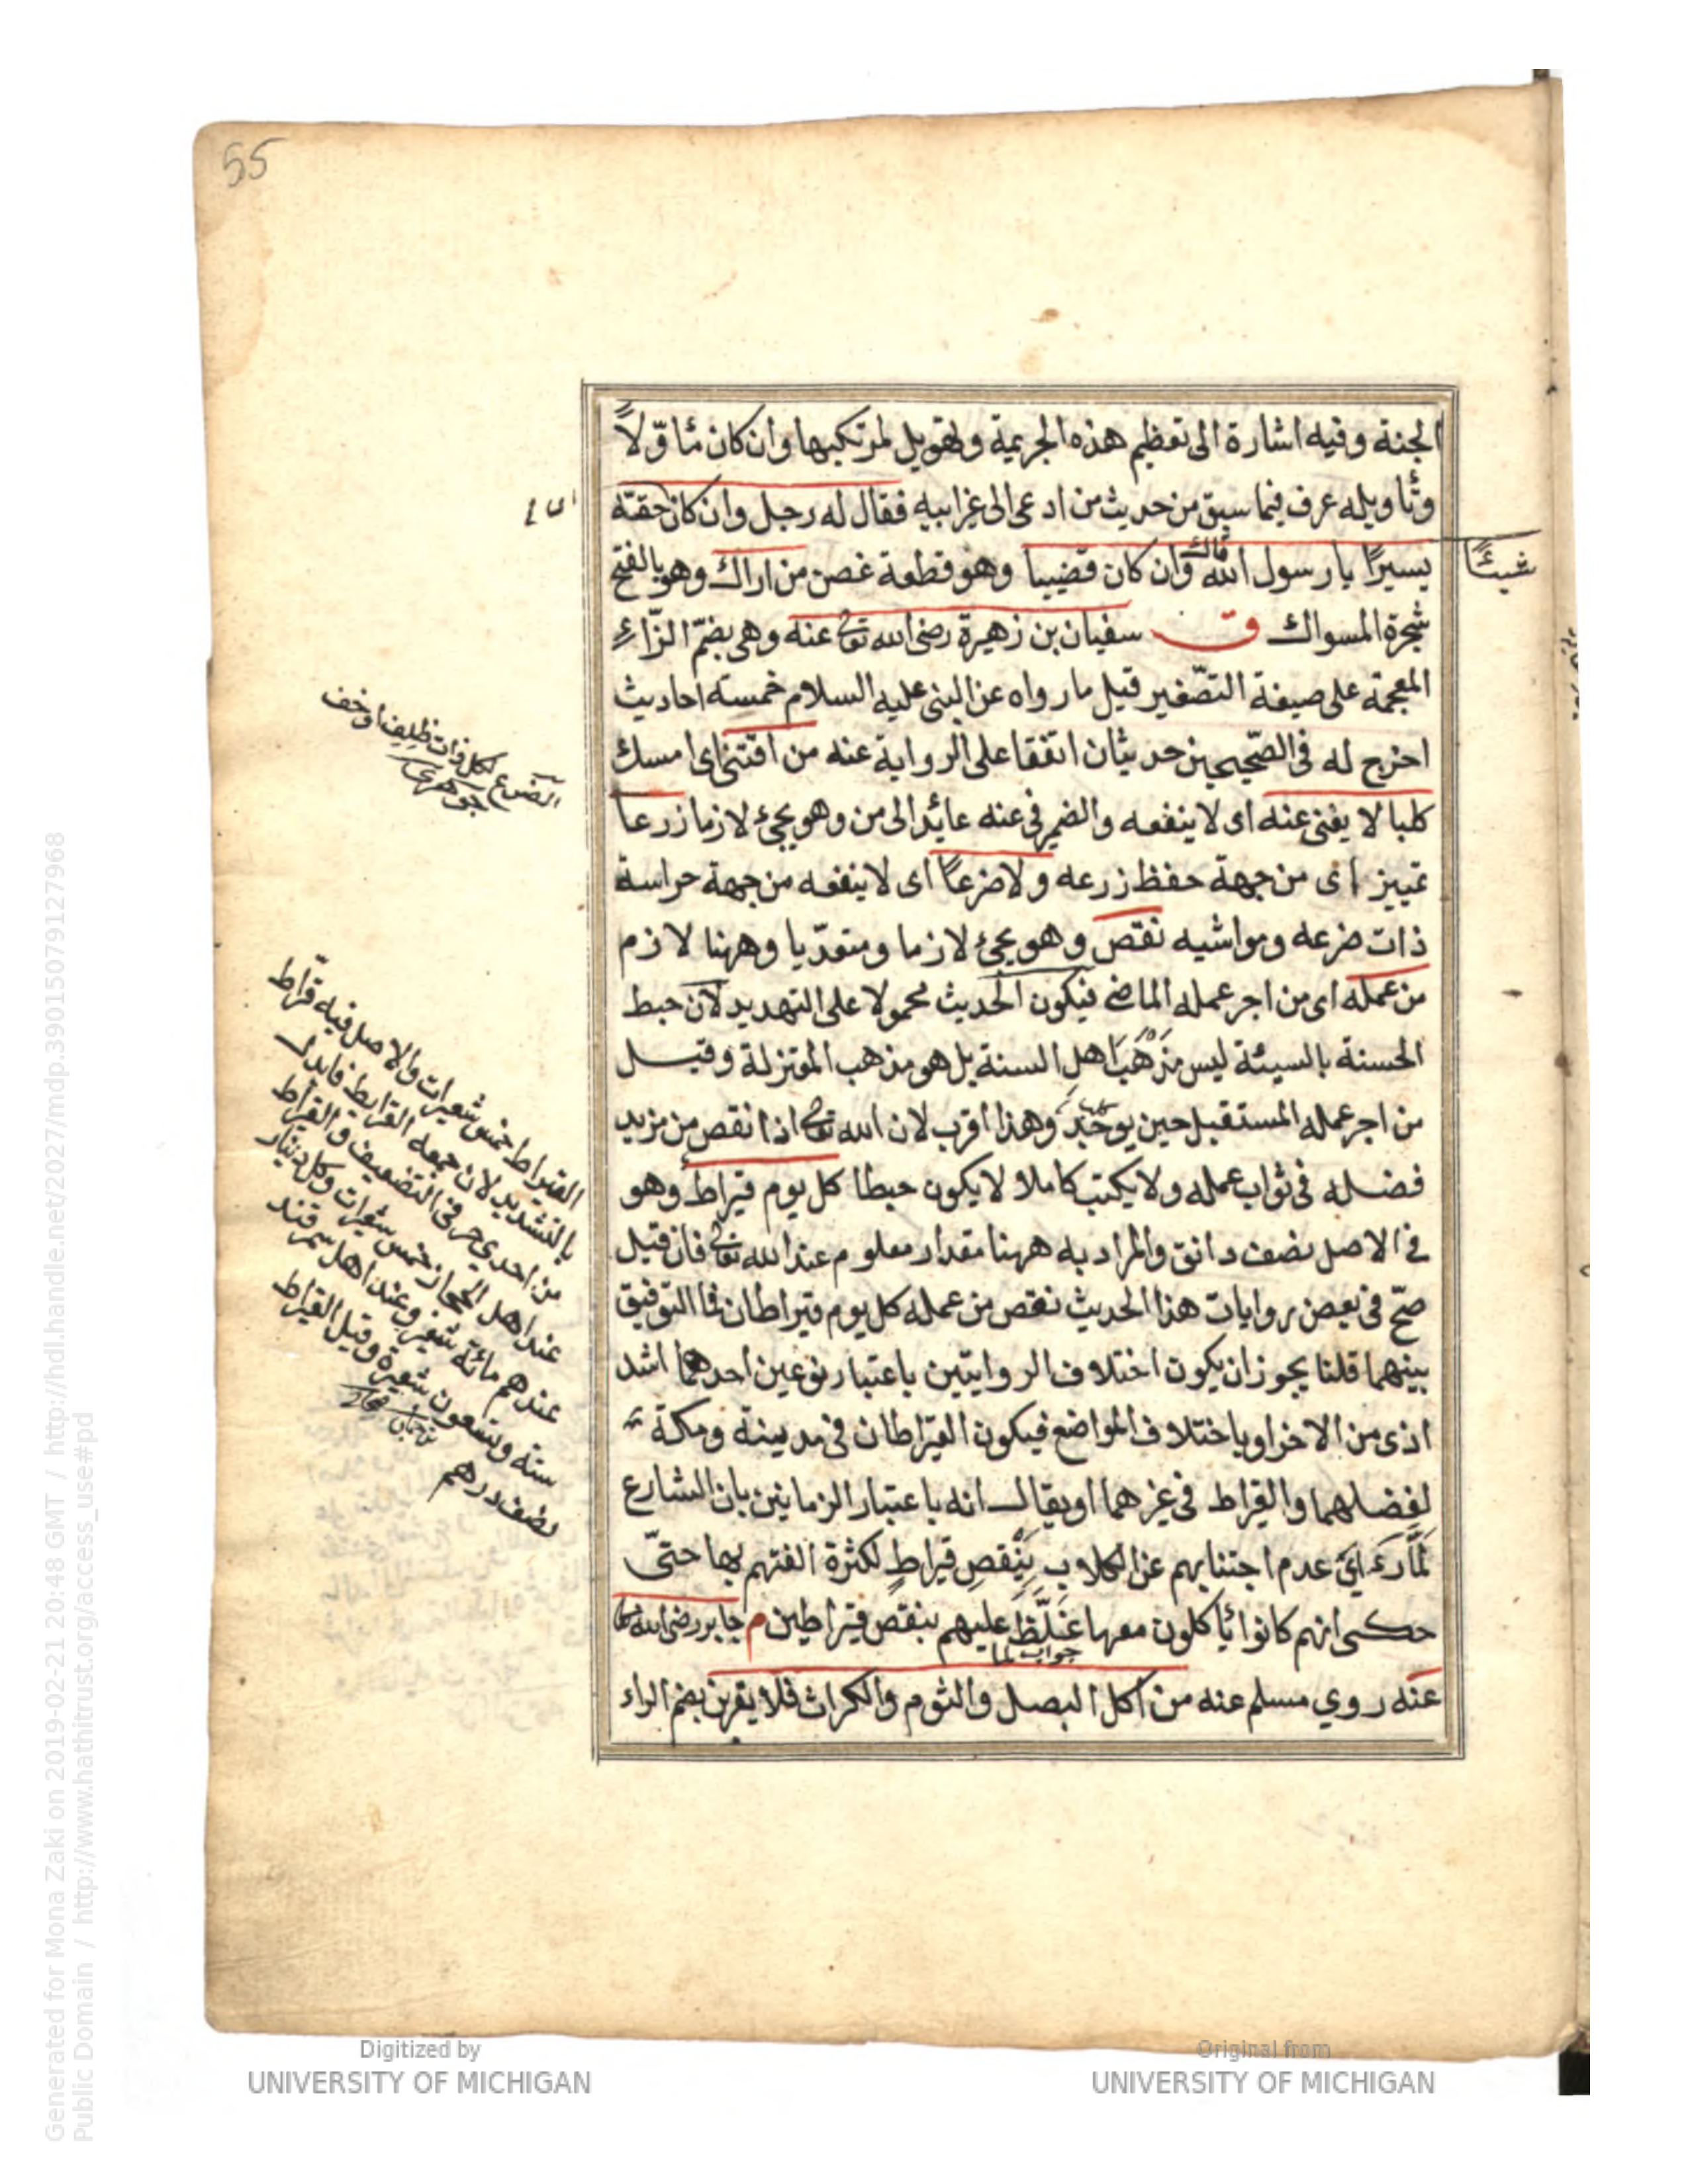 55
الجنة وفيه اشارة الى تعظيم هذه الجريمة وتهويل لمرتكبيها وان كان متاوّلاً
وتاويله عرف فيما سبق من حديث من ادعى الى غير ابيه فقال له رجل وان كان حقته
شيئًا
يسيرًا يا رسول الله قال وان كان قضيبا وهو قطعة غصن من اراك وهو بالفتح
شجرة المسواك ق سفيان بن زهيرة رضى الله تعالى عنه وهى بضمّ الزّاء
المعجمة على صيغة التصّغير قيل ما رواه عن النبى عليه السلام خمسة احاديث
اخرج له فى الصّحيحين حديثان اتفقا على الرواية عنه من اقتنى اى امسك
كلبا لا يغنى عنه اى لا ينفعه والضمير فى عنه عائد الى من وهو يجئ لازما زرعا
تمييز اى من جهة حفظ زرعه ولا ضرعًا اى لا ينفعه من جهة حراسة
ذات ضرعه ومواشيه نقص وهو يجئ لازما ومتعدّيا وههنا لازم
من عمله اى من اجر عمله الماضى فيكون الحديث محمولا على التهديد لان حبط
الحسنة بالسيئة ليس مذهب اهل السنة بل هو مذهب المعتزلة وقيل
من اجر عمله المستقبل حين يوجد وهذا اقرب لان الله تعالى اذا نقص من مزيد
فضله فى ثواب عمله ولا يكتب كاملا لا يكون حبطا كل يوم قيراط وهو
فى الاصل نصف دانق والمراد به ههنا مقدار معلوم عند الله تعالى فان قيل
صحّ فى بعض روايات هذا الحديث نقص من عمله كل يوم قيراطان فما التوفيق
بينهما قلنا يجوز ان يكون اختلاف الروايتين باعتبار نوعين احدهما اشد
اذى من الاخر او باختلاف المواضع فيكون القيراطان فى مدينة ومكة
لفضلهما والقيراط فى غيرهما او يقال انه باعتبار الزمانين بان الشارع
لمّا رأى عدم اجتنابهم عن الكلاب ينقص قيراطٍ لكثرة الفتهم بها حتّى
حكى انهم كانوا يأكلون معها غلّظ عليهم بنقص قيراطين م جابر رضى الله تعالى
جواب لما
عنه روي مسلم عنه من اكل البصل والثوم والكراث فلا يقربن بضم الراء
الضرع لكل ذات ظلف او خف
جوهرى
القيراط خمس شعيرات والاصل فيه قرّاط
بالتشديد لان جمعه القراريط فابدل
من احدى حرفى التضعيف والقيراط
عند اهل الحجاز خمس شعيرات وكل دينار
عندهم مائة شعير وعند اهل سمرقند
ستة وتسعون شعيرة وقيل القيراط
نصف درهم
Digitized by
UNIVERSITY OF MICHIGAN
Original from
UNIVERSITY OF MICHIGAN
Generated for Mona Zaki on 2019-02-21 20:48 GMT / http://hdl.handle.net/2027/mdp.39015079127968
Public Domain / http://www.hathitrust.org/access_use#pd